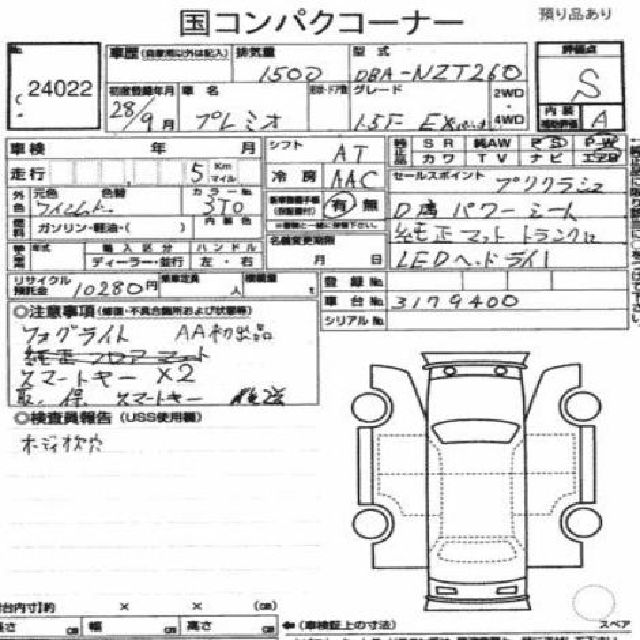 国コンパクコーナー 預り品あり
24022
車歴(自家用以外は記入) 排気量 1500 型式 DBA-NZT260 評価点 S
初度登録年月 28/9月 車名 プレミオ グレード 1.5F EX 2WD 4WD 内装 A
車検 年 月 シフト AT 純正品 SR 純AW PS PW
カワ TV ナビ エアB
走行 5 Km マイル 冷房 AAC セールスポイント プリクラシュ
外色 元色 色替 カラーNo 3T0 有 無 D席 パワーシート
燃料 ガソリン・軽油・( ) 内装色 純正マット トランク
年式 輸入区分 ハンドル 名義変更期限 LEDヘッドライト
ディーラー・並行 左・右 月 日
リサイクル預託金 10280円 乗車定員 人 積載量 登録No
車台No 3179400
シリアルNo
◎注意事項(修復・不具合箇所および状態等)
フォグライト AA初出品
純正フロアマット
スマートキー X2
取、保 スマートキー 後送
◎検査員報告(USS使用欄)
ボディ
荷台内寸】約 × × (cm)
長さ cm 幅 cm 高さ cm ←(車検証上の寸法) スペア